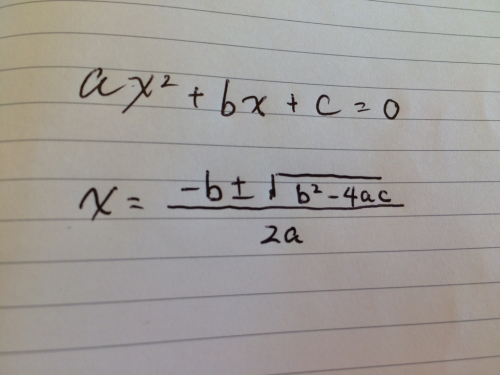 ax² + bx + c = 0
x = (-b ± √(b² - 4ac)) / 2a